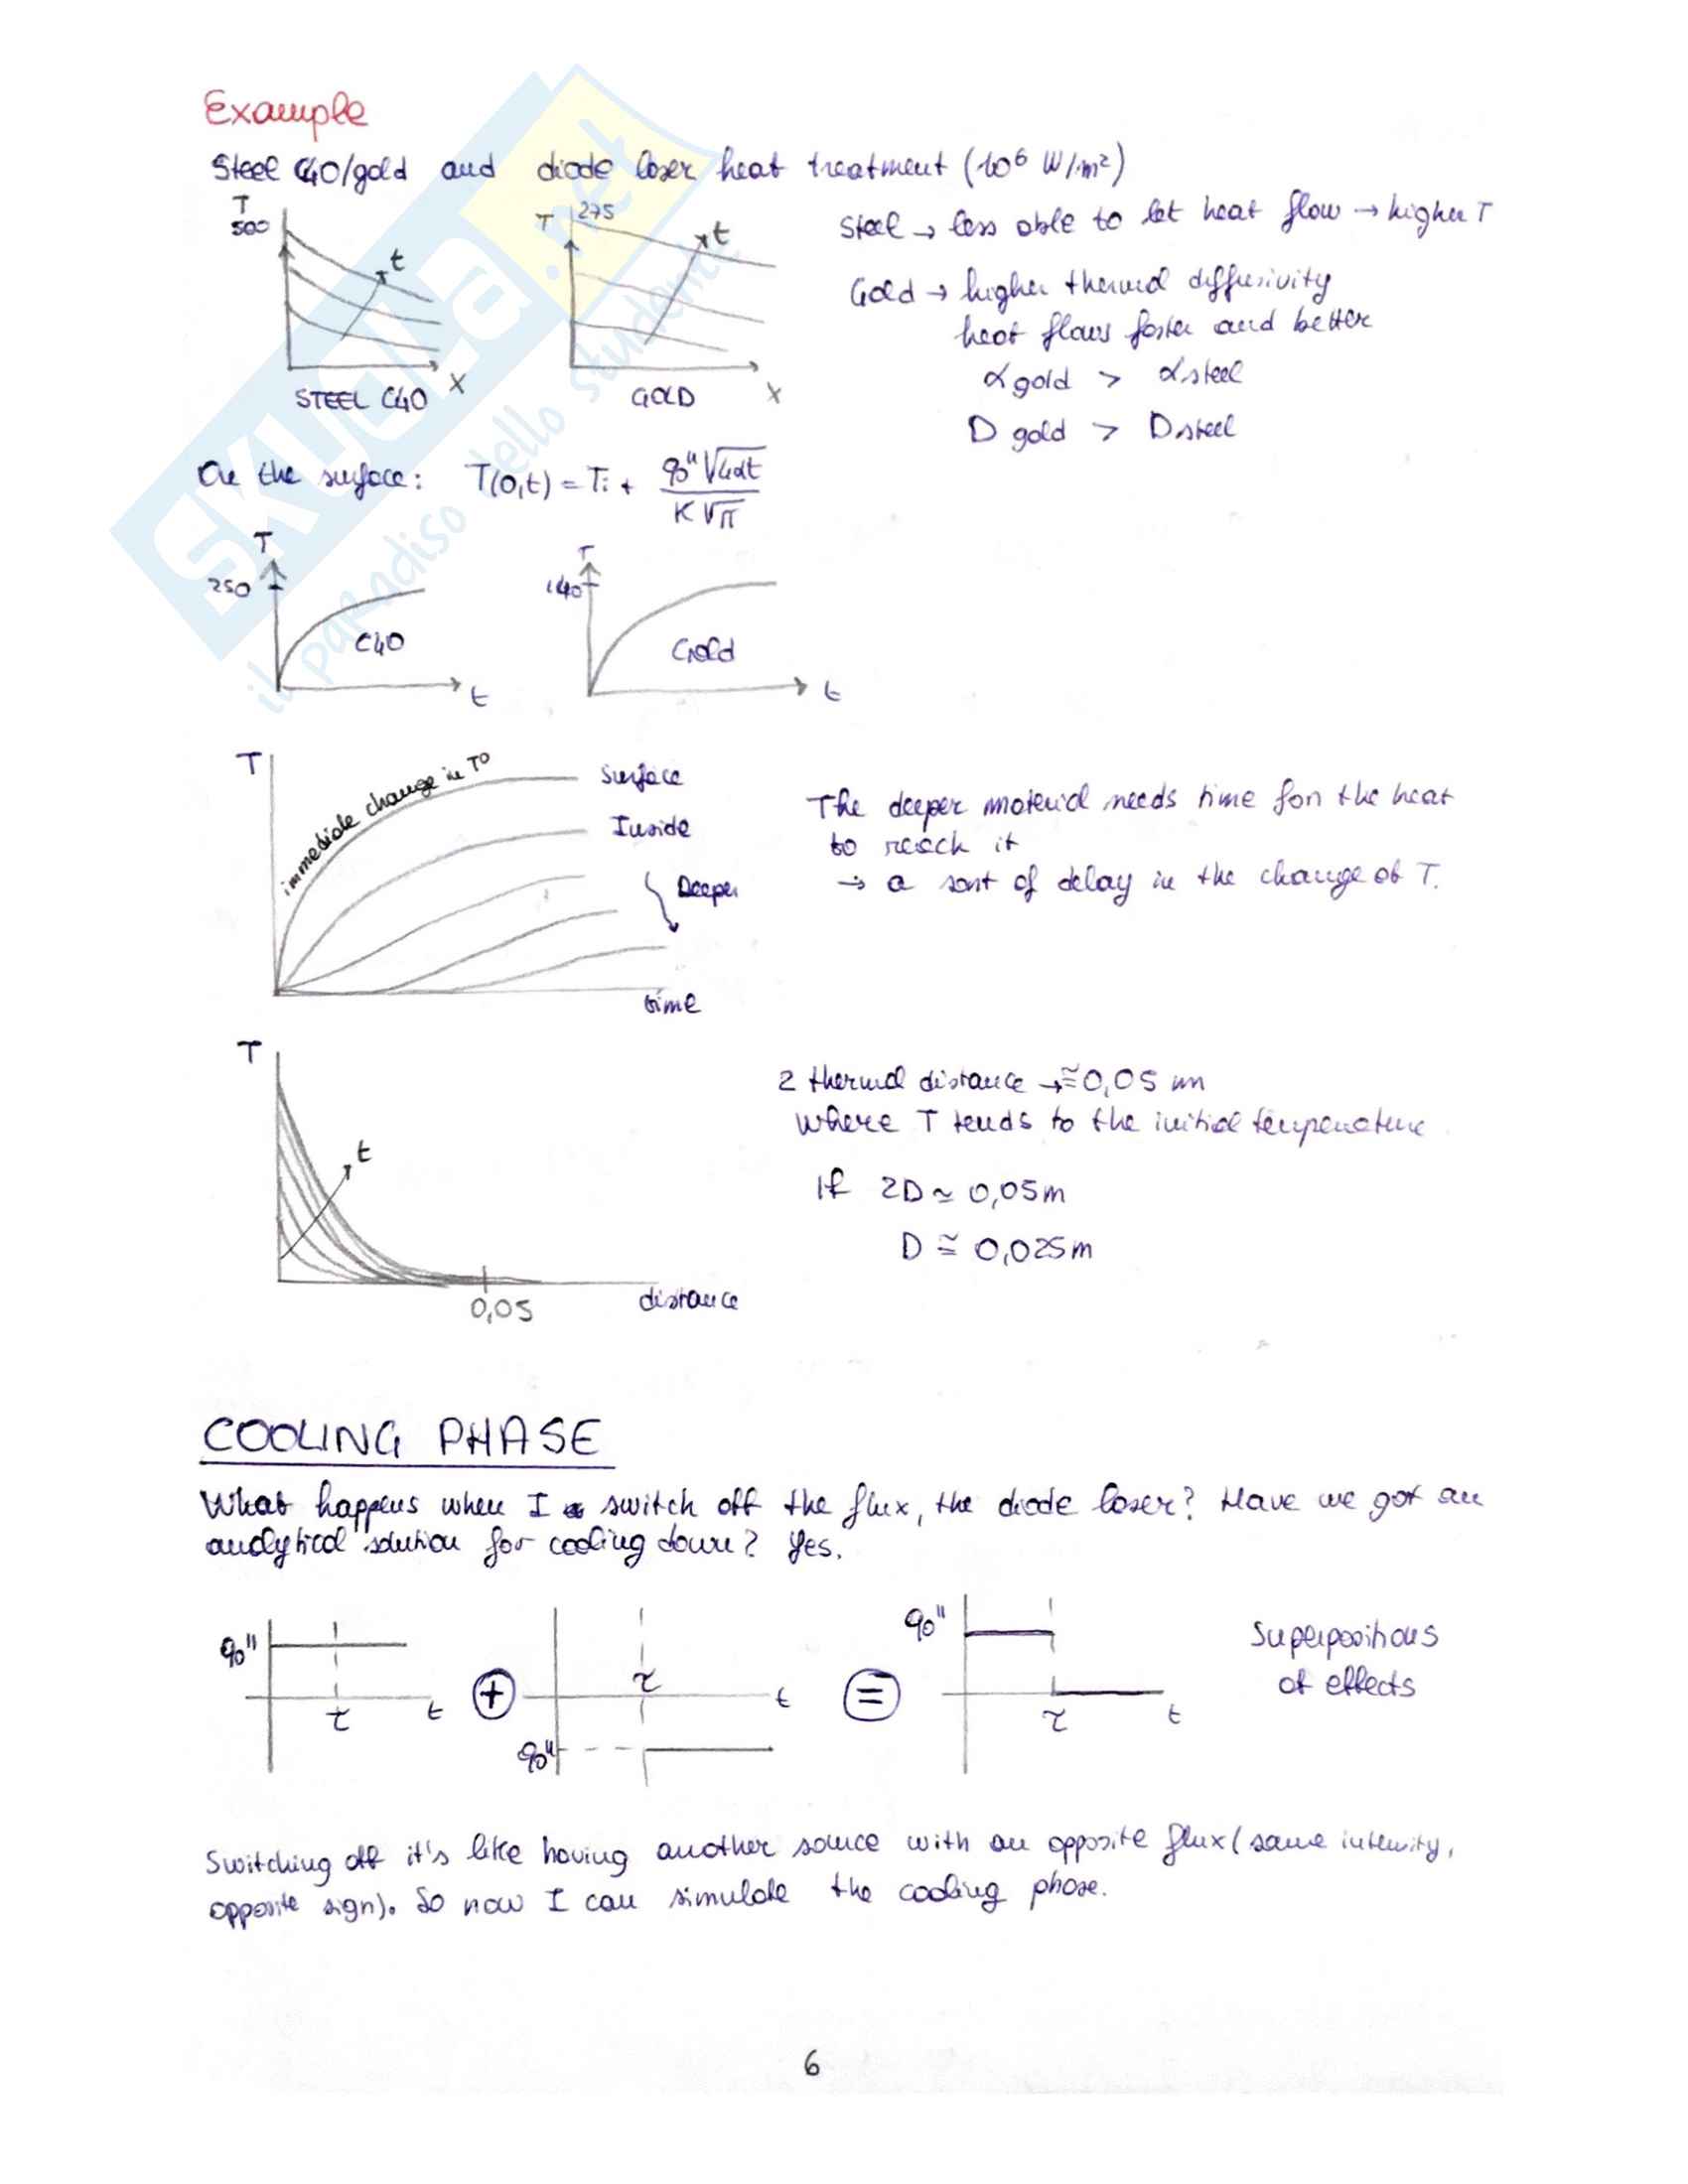 Example
Steel C40/gold and diode laser heat treatment (10⁶ W/m²)
T
500
t
x
STEEL C40
T
275
t
x
GOLD
Steel → less able to let heat flow → higher T
Gold → higher thermal diffusivity
heat flows faster and better
α gold > α steel
D gold > D steel
On the surface: T(0,t) = Ti + q0" √4αt / K √π
T
250
C40
t
T
140
Gold
t
T
immediate change in T°
Surface
Inside
Deeper
time
The deeper material needs time for the heat
to reach it
→ a sort of delay in the change of T.
T
t
0,05
distance
2 thermal distance → ≅ 0,05 m
where T tends to the initial temperature
If 2D ≃ 0,05 m
D ≅ 0,025 m
COOLING PHASE
What happens when I switch off the flux, the diode laser? Have we got an
analytical solution for cooling down? Yes.
q0"
τ
t
+
τ
t
-q0"
=
q0"
τ
t
Superpositions
of effects
Switching off it's like having another source with an opposite flux (same intensity,
opposite sign). So now I can simulate the cooling phase.
6
SKUOLA.net
il paradiso dello studente